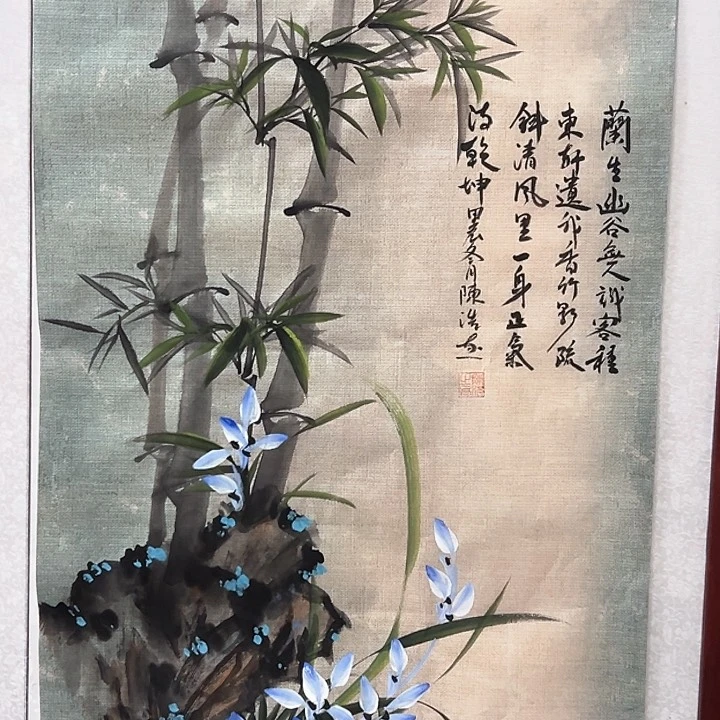 蘭生幽谷無人識客種
東軒遺我香竹影疏
斜清風里一身正氣
滿乾坤甲辰冬月陳浩画